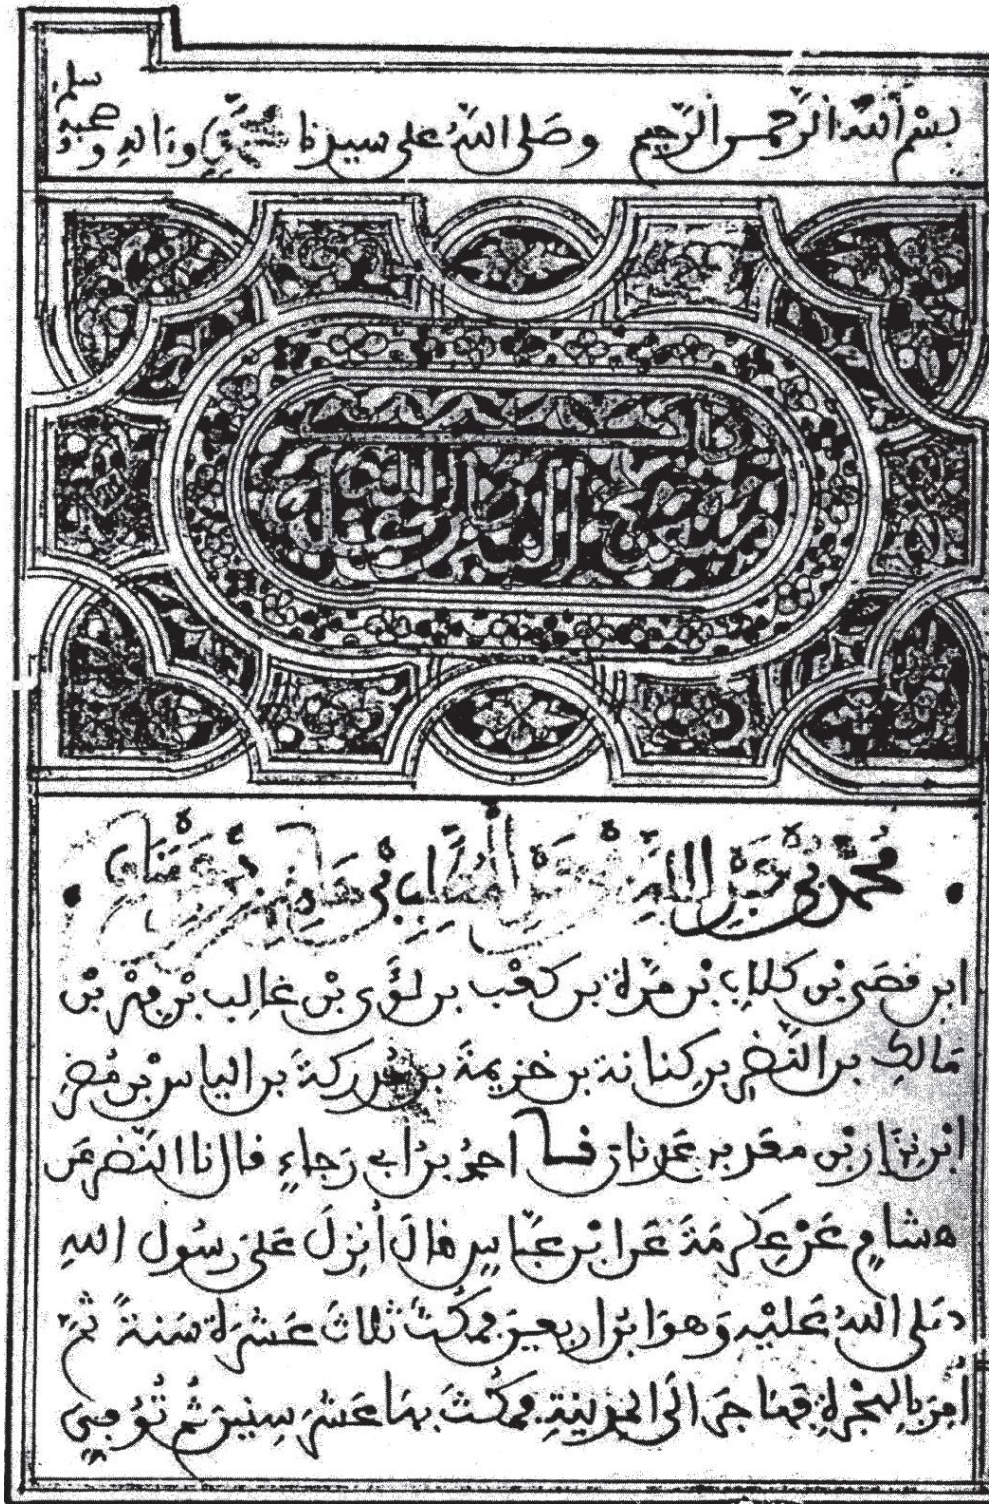 بسم الله الرحمن الرحيم وصلى الله على سيدنا محمد وءاله وصحبه وسلم
باب مبعث النبي صلى الله
محمد بن عبد الله بن عبد المطلب بن هاشم بن عبد مناف
ابن قصي بن كلاب بن مرة بن كعب بن لؤي بن غالب بن فهر بن
مالك بن النضر بن كنانة بن خزيمة بن مدركة بن الياس بن مضر
ابن نزار بن معد بن عدنان نا احمد بن ابي رجاء قال نا النضر عن
هشام عن عكرمة عن ابن عباس قال أنزل على رسول الله
صلى الله عليه وهو ابن اربعين فمكث ثلاث عشرة سنة ثم
أمر بالهجرة فهاجر الى المدينة فمكث بها عشر سنين ثم توفي